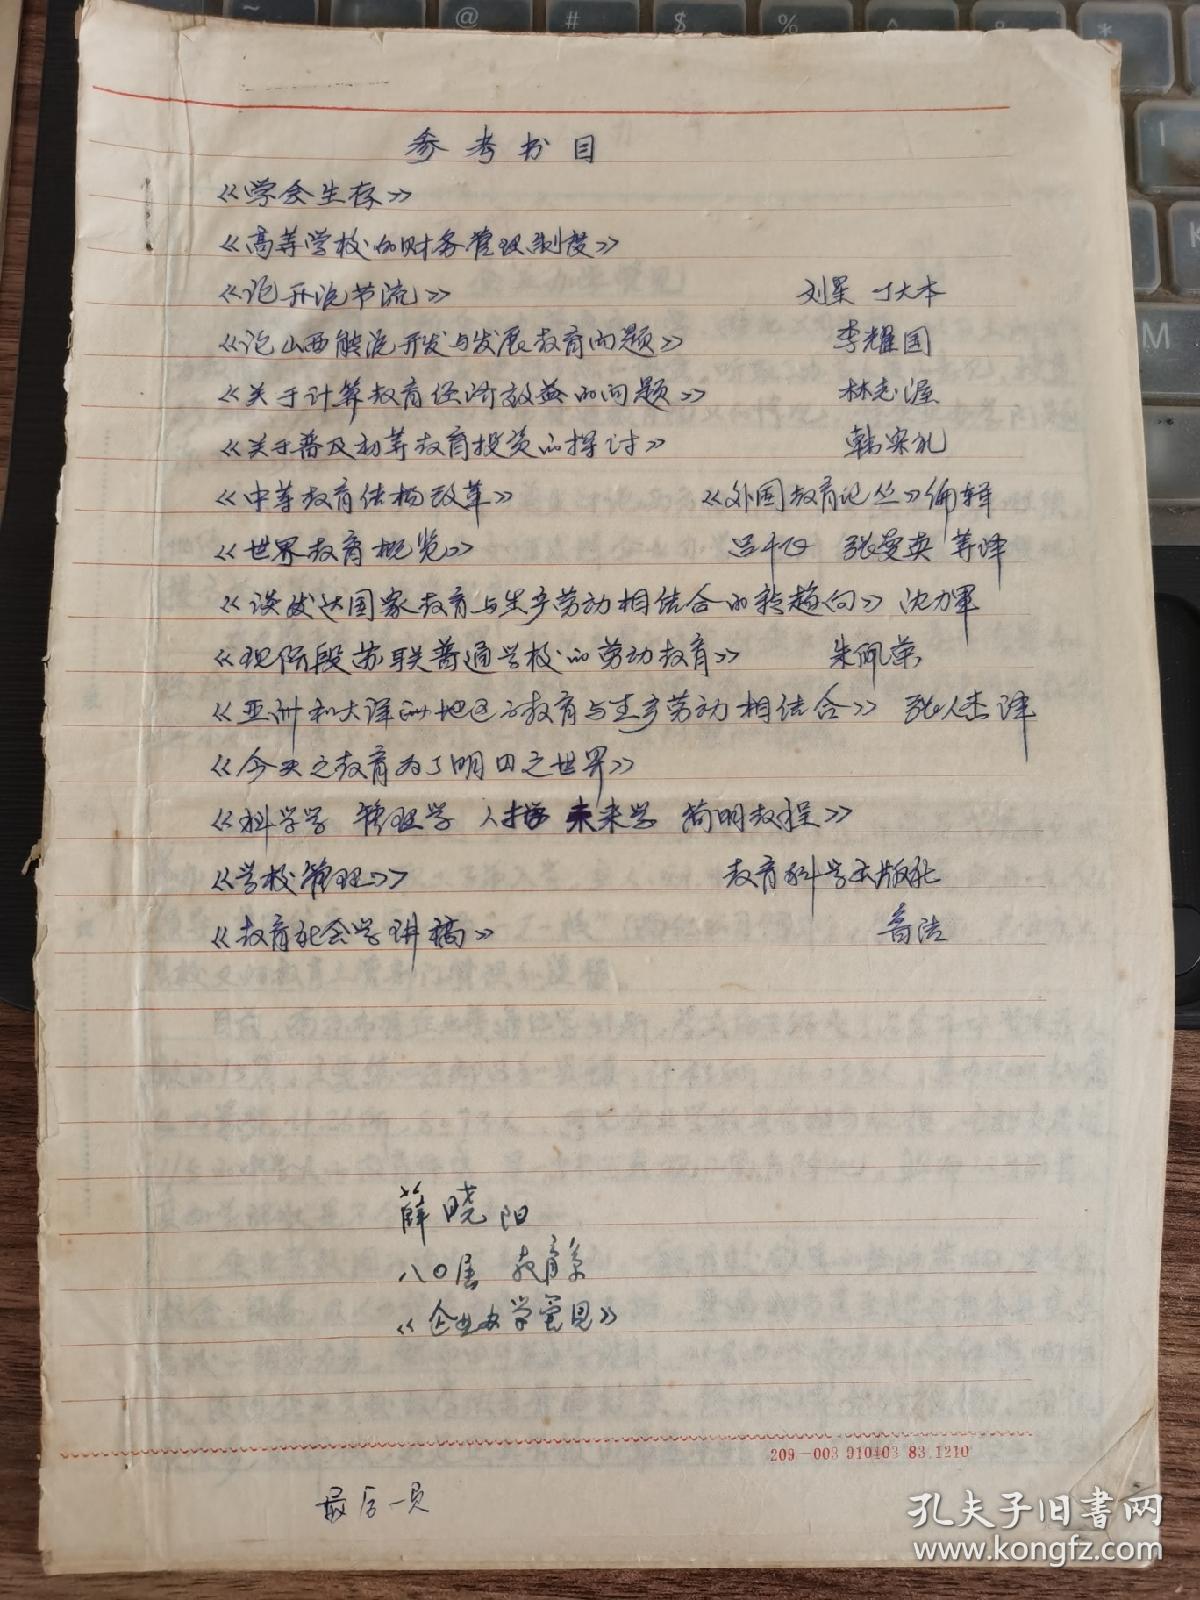 参考书目
《学会生存》
《高等学校的财务管理制度》
《论开源节流》 刘星 丁大本
《论山西能源开发与发展教育问题》 李耀国
《关于计算教育经济效益的问题》 林志
《关于普及初等教育投资的探讨》 韩宗礼
《中等教育结构改革》 《外国教育论丛》编辑
《世界教育概览》 吕千飞 张曼真 等译
《谈发达国家教育与生产劳动相结合的新趋向》 沈力军
《现阶段苏联普通学校的劳动教育》 朱佩荣
《亚洲和大洋洲地区的教育与生产劳动相结合》 张人杰译
《今天之教育为了明日之世界》
《科学学 管理学 人才学 未来学 简明教程》
《学校管理》 教育科学出版社
《教育社会学讲稿》 鲁洁
薛晓阳
八〇届 教育系
《企业办学管见》
209—003 910403 83.1210
最后一页
孔夫子旧书网
www.kongfz.com